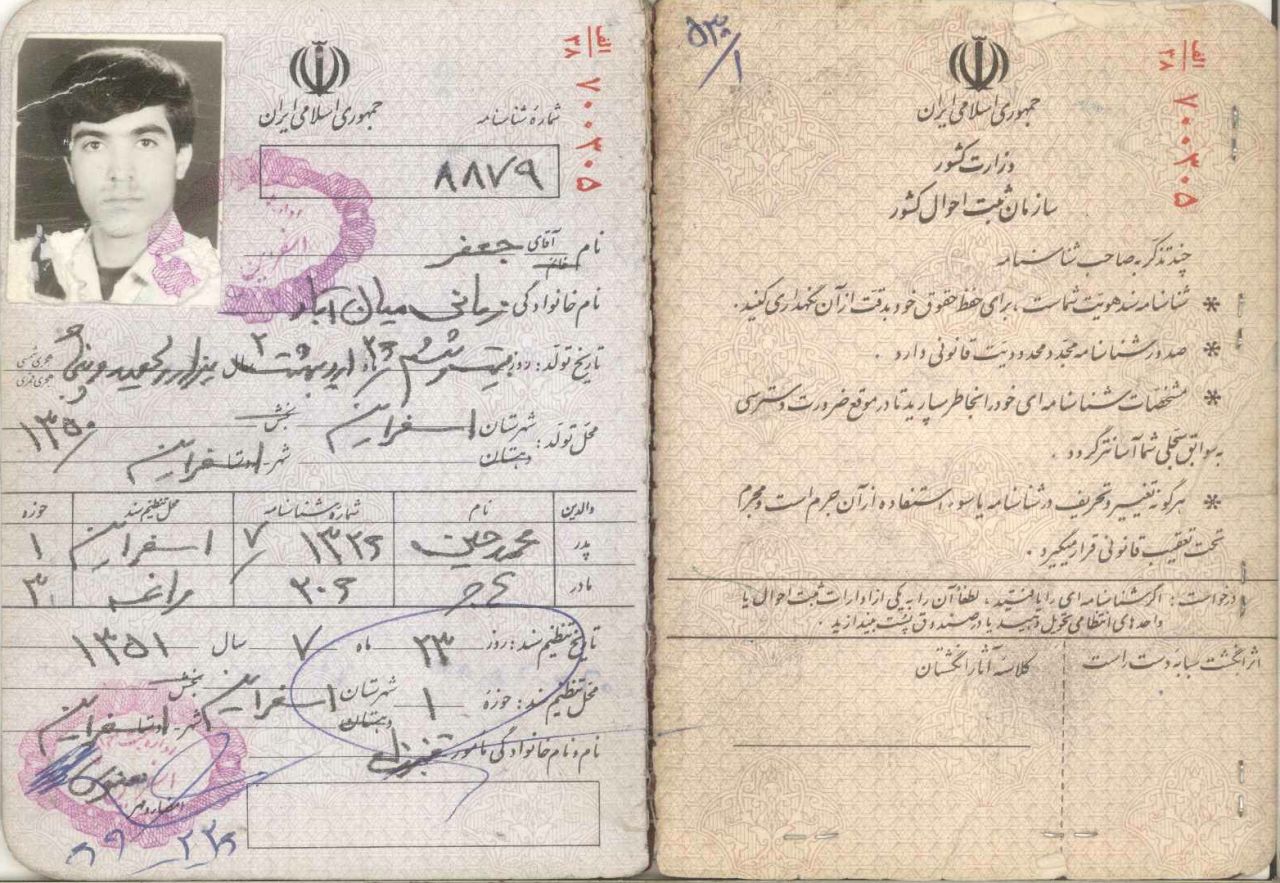 ۵۳۰/۱
الف/۳۸ ۷۰۰۳۰۵
جمهوری اسلامی ایران
وزارت کشور
سازمان ثبت احوال کشور
چند تذکر به صاحب شناسنامه
* شناسنامه سند هویت شماست ، برای حفظ حقوق خود بدقت از آن نگهداری کنید .
* صدور شناسنامه مجدد محدودیت قانونی دارد .
* مشخصات شناسنامه ای خود را بخاطر بسپارید تا در موقع ضرورت دسترسی
به سوابق سجلی شما آسانتر گردد .
* هر گونه تغییر و تحریف در شناسنامه یا سوء استفاده از آن جرم است و مجرم
تحت تعقیب قانونی قرار میگیرد .
درخواست : اگر شناسنامه ای را یافتید ، لطفاً آن را به یکی از ادارات ثبت احوال یا
واحدهای انتظامی تحویل دهید یا در صندوق پست بیندازید .
اثر انگشت سبابه دست راست
کلاسه آثار انگشتان
الف/۳۸ ۷۰۰۳۰۵
جمهوری اسلامی ایران
شماره شناسنامه
۸۸۷۹
نام آقای خانم جعفر
نام خانوادگی : زمانی میان آباد
تاریخ تولد : روز ماه اردیبهشت سال یکهزار و سیصد و پنجاه هجری شمسی هجری قمری
۱۳۵۰
محل تولد : شهرستان اسفراین بخش
دهستان شهر - روستا اسفراین
والدین نام شماره شناسنامه محل تنظیم سند حوزه
پدر محمد حسین اسفراین ۱
مادر ۳
تاریخ تنظیم سند : روز ۲۳ ماه ۷ سال ۱۳۵۱
محل تنظیم سند : حوزه ۱ شهرستان اسفراین بخش
دهستان شهر - روستا اسفراین
نام و نام خانوادگی مامور
امضاء و مهر